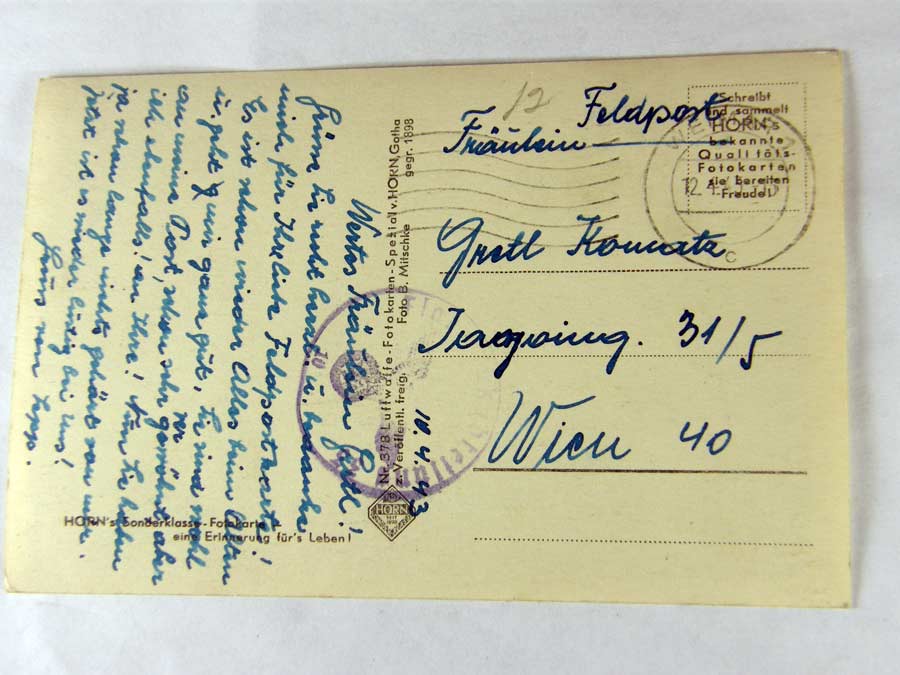 12
Feldpost
Fräulein
Gretl
31/5
Wien 40
Schreibt
und sammelt
HORN's
bekannte
Qualitäts-
Fotokarten
sie bereiten
Freude!
12.4.
c
Nr. 378 Luftwaffe-Fotokarten-Spezial v. HORN, Gotha
gegr. 1898
z. Veröffentl. freig. Foto B. Mitschke
HORN
HORN's Sonderklasse-Fotokarte -
eine Erinnerung für's Leben!
10.4.43
Wertes Fräulein Gretl!
Grüsse Sie recht herzl. u. bedanke
mich für Ihre liebe Feldpostkarte!
Es ist schon wieder Alles beim Alten
u. geht mir ganz gut, Sie sind wohl
an meine Post, schon sehr gewöhnt, aber
ich ebenfalls, an Ihre! Nun Sie haben
ja schon lange nichts gehört von mir.
Jetzt ist es wieder lustig bei uns!
Gruss von Sepp.